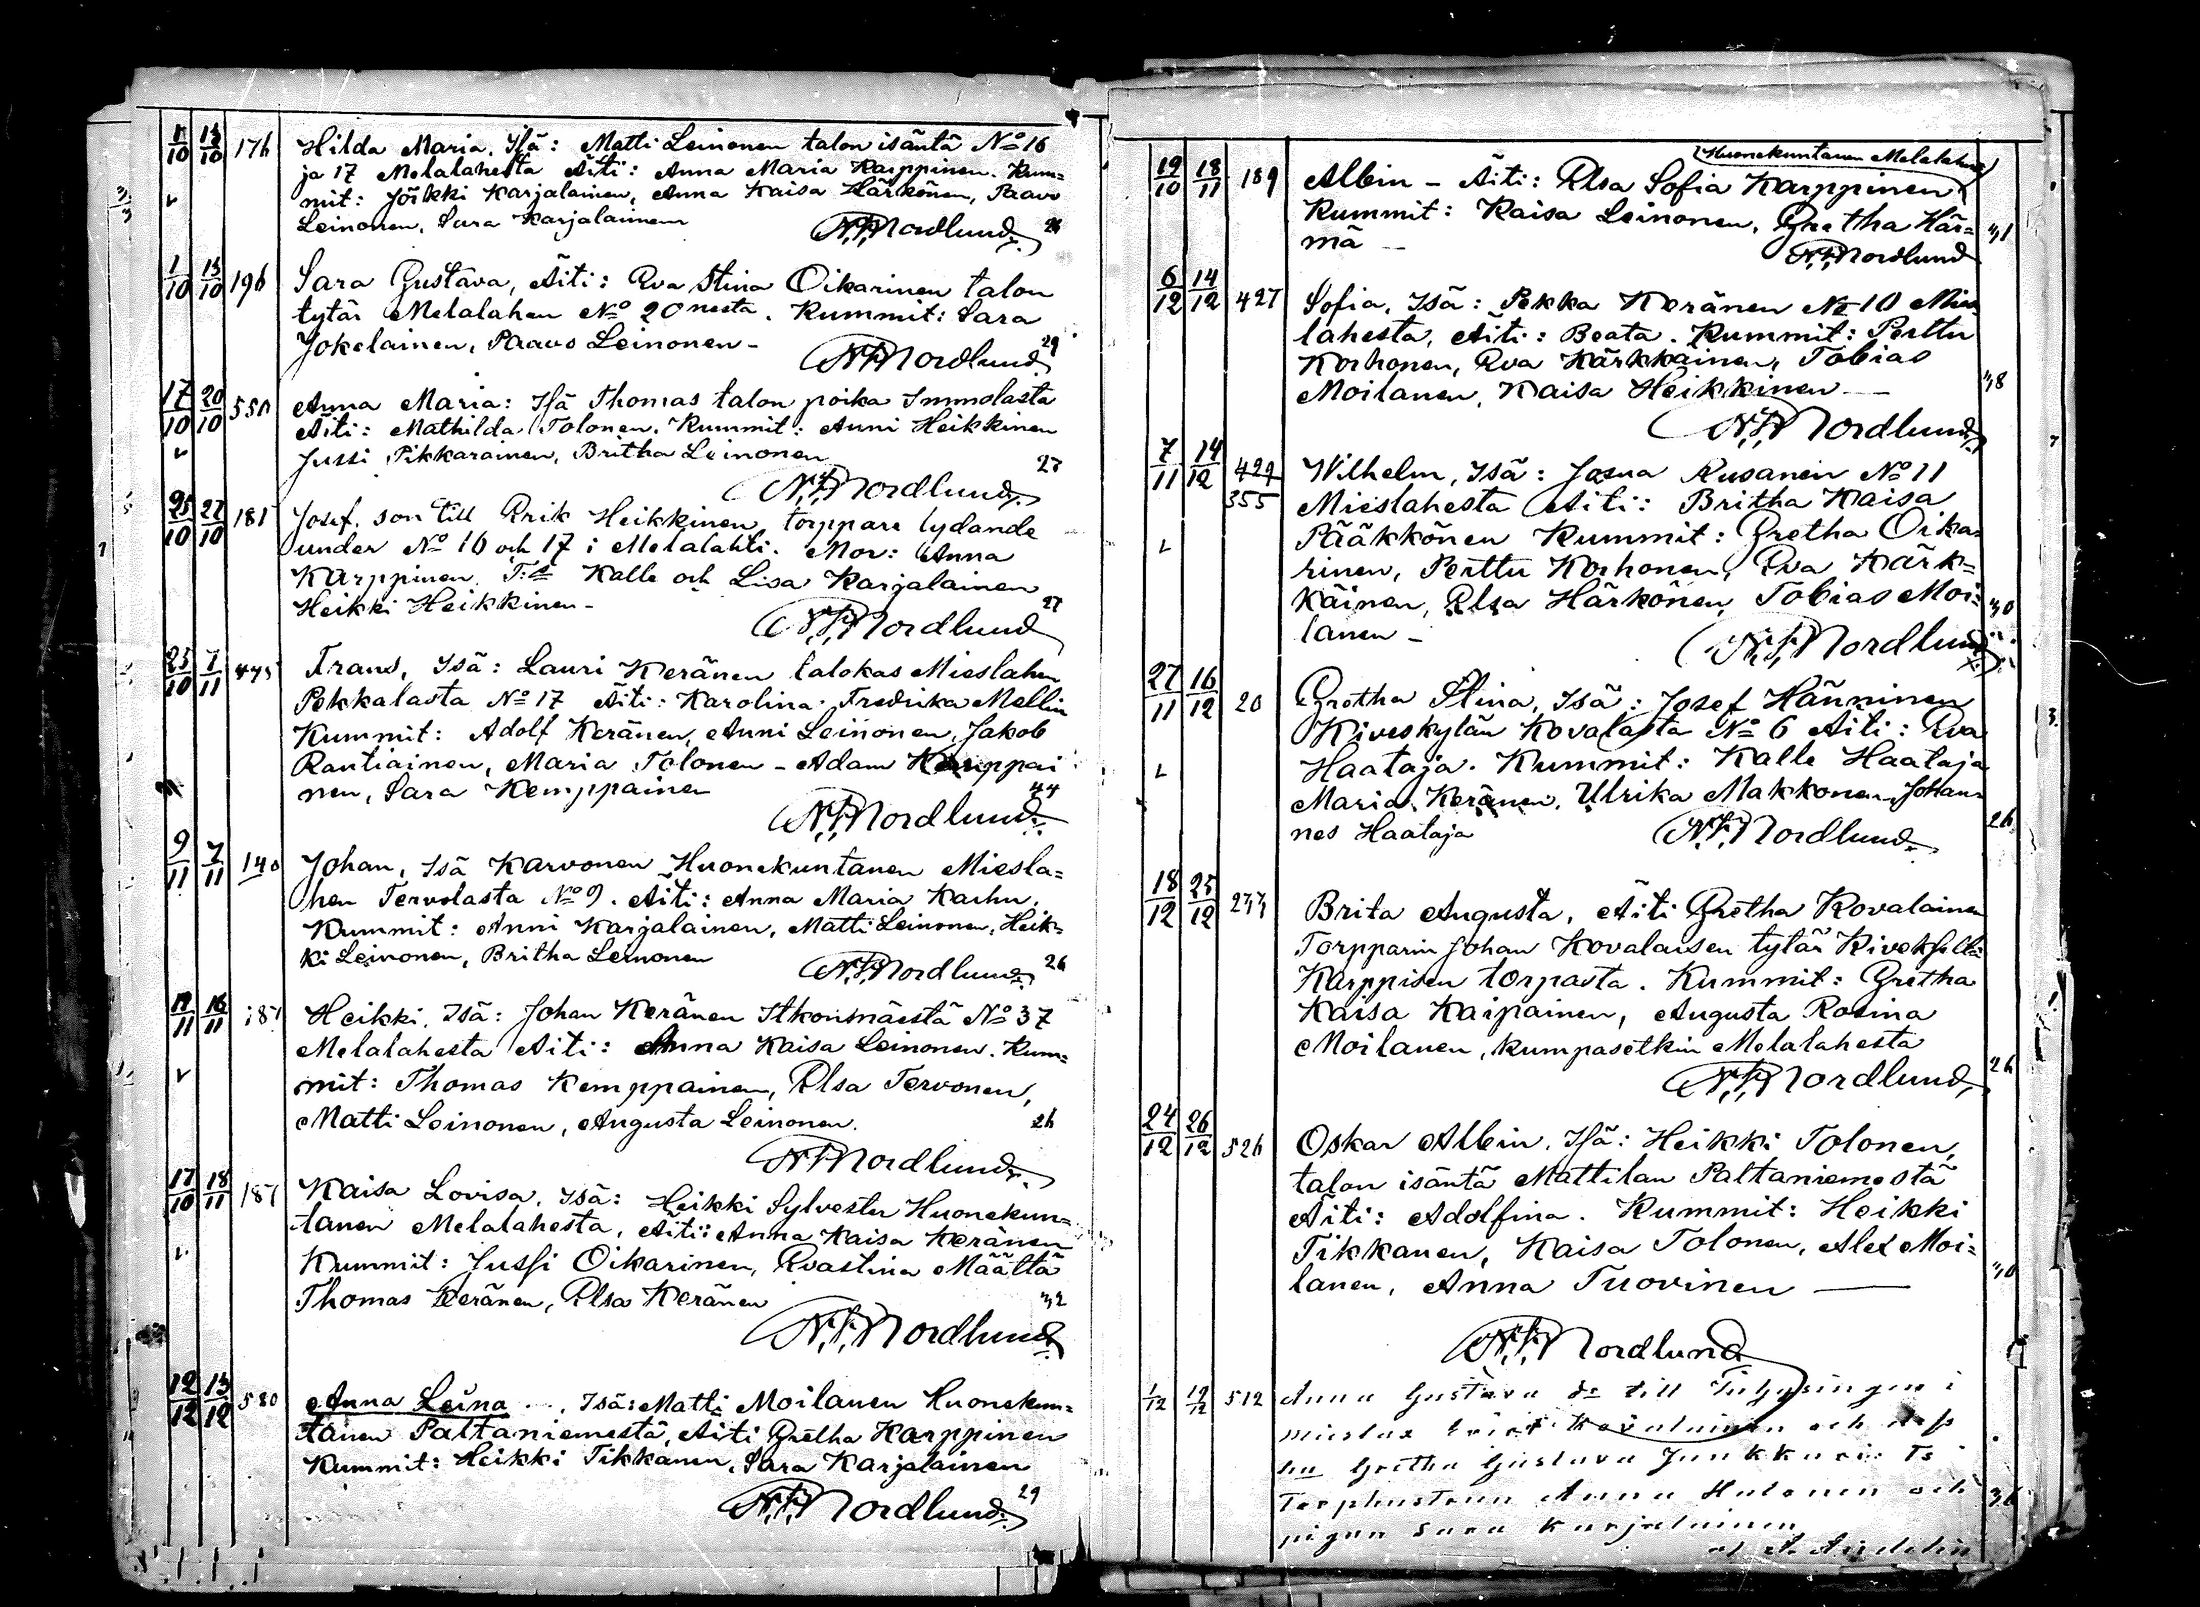 13/10 176 Hilda Maria, Isä: Matti Leinonen talon isäntä No 16
ja 17 Melalahesta Äiti: Anna Maria Karppinen. Kum=
mit: Jörkki Karjalainen, Anna Kaisa Härkönen, Paavo
Leinonen, Sara Karjalainen
N.F. Nordlund
1/10 13/10 196 Sara Gustava, Äiti: Eva Stina Oikarinen talon
tytär Melalahen No 20 nesta. Kummit: Sara
Jokelainen, Paavo Leinonen - 29
N.F. Nordlund
17/10 20/10 550 Anna Maria: Isä Thomas talon poika Immolasta
Äiti: Mathilda Tolonen. Kummit: Anni Heikkinen
Jussi Pikkarainen, Britha Leinonen 27
N.F. Nordlund
25/10 27/10 181 Josef. son till Erik Heikkinen, torppare lydande
under No 16 och 17 i Melalahti. Mor: Anna
Karppinen. T:e Kalle och Lisa Karjalainen
Heikki Heikkinen - 27
N.F. Nordlund
23/10 7/11 475 Frans, Isä: Lauri Keränen talokas Mieslahen
Pekkalasta No 17 Äiti: Karolina Fredrika Mellin
Kummit: Adolf Keränen, Anni Leinonen, Jakob
Rantiainen, Maria Tolonen - Adam Kemppai
nen, Sara Kemppainen 44
N.F. Nordlund
9/11 7/11 140 Johan, Isä Karvonen Huonekuntanen Miesla=
hen Tervolasta No 9. Äiti: Anna Maria Karhu.
Kummit: Anni Karjalainen, Matti Leinonen, Heik=
ki Leinonen, Britha Leinonen 26
N.F. Nordlund
16/11 187 Heikki, Isä: Johan Keränen Itkonmäestä No 37
Melalahesta Äiti: Anna Kaisa Leinonen. Kum=
mit: Thomas Kemppainen, Elsa Tervonen,
Matti Leinonen, Augusta Leinonen. 26
N.F. Nordlund
17/10 18/11 187 Kaisa Lovisa, Isä: Heikki Sylvester Huonekun=
tanen Melalahesta, Äiti: Anna Kaisa Keränen
Kummit: Jussi Oikarinen, Evastina Määttä
Thomas Keränen, Elsa Keränen 32
N.F. Nordlund
12/12 13/12 580 Anna Leina, Isä: Matti Moilanen Huonekun=
tanen Paltaniemestä, Äiti Gretha Karppinen
Kummit: Heikki Tikkanen, Sara Karjalainen
29
N.F. Nordlund
Huonekuntanen Melalahesta
19/10 18/11 189 Albin - Äiti: Elsa Sofia Karppinen
Kummit: Kaisa Leinonen, Gretha Här=
mä - 31
N.F. Nordlund
6/12 14/12 427 Sofia, Isä: Pekka Keränen No 10 Mies
lahesta, Äiti: Beata. Kummit: Perttu
Korhonen, Eva Kärkkäinen, Tobias
Moilanen, Kaisa Heikkinen - 38
N.F. Nordlund
7/11 14/12 429 Wilhelm, Isä: Josua Rusanen No 11
355 Mieslahesta Äiti: Britha Kaisa
Pääkkönen Kummit: Gretha Oika=
rinen, Perttu Korhonen, Eva Kärk=
käinen, Elsa Härkönen, Tobias Moi=
lanen - 30
N.F. Nordlund
27/11 16/12 20 Gretha Stina, Isä: Josef Hänninen
Kiveskylän Kovalasta No 6 Äiti: Eva
Haataja. Kummit: Kalle Haataja
Maria Keränen, Ulrika Makkonen, Johan=
nes Haataja 26
N.F. Nordlund
18/12 25/12 233 Brita Augusta, Äiti Gretha Kovalainen
Torpparin Johan Kovalaisen tytär
Karppisen torpasta. Kummit: Gretha
Kaisa Kaipainen, Augusta Rosina
Moilanen, kumpasetkin Melalahesta
26
N.F. Nordlund
24/12 26/12 526 Oskar Albin, Isä: Heikki Tolonen,
talon isäntä Mattilan Paltaniemestä
Äiti: Adolfina. Kummit: Heikki
Tikkanen, Kaisa Tolonen, Alex Moi=
lanen, Anna Tuovinen 30
N.F. Nordlund
1/12 19/12 512 Anna Gustava dr till Inhysingen i
Kovalainen och
Gretha Gustava Junkkari: Ts
Anna Hulonen och
pigan Sara Karjalainen